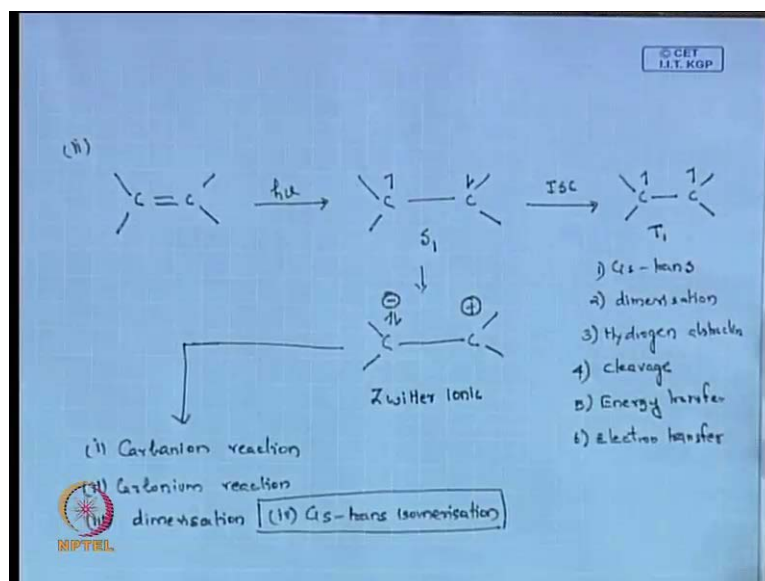 © CET
I.I.T. KGP
(ii)
C = C
hν
C — C
S₁
ISC
C — C
T₁
⊖ ⊕
C — C
Zwitter Ionic
1) Cis-trans
2) dimerisation
3) Hydrogen abstractn
4) Cleavage
5) Energy transfer
6) Electron transfer
(i) Carbanion reaction
(ii) Carbonium reaction
dimerisation (iv) Cis-trans isomerisation
NPTEL